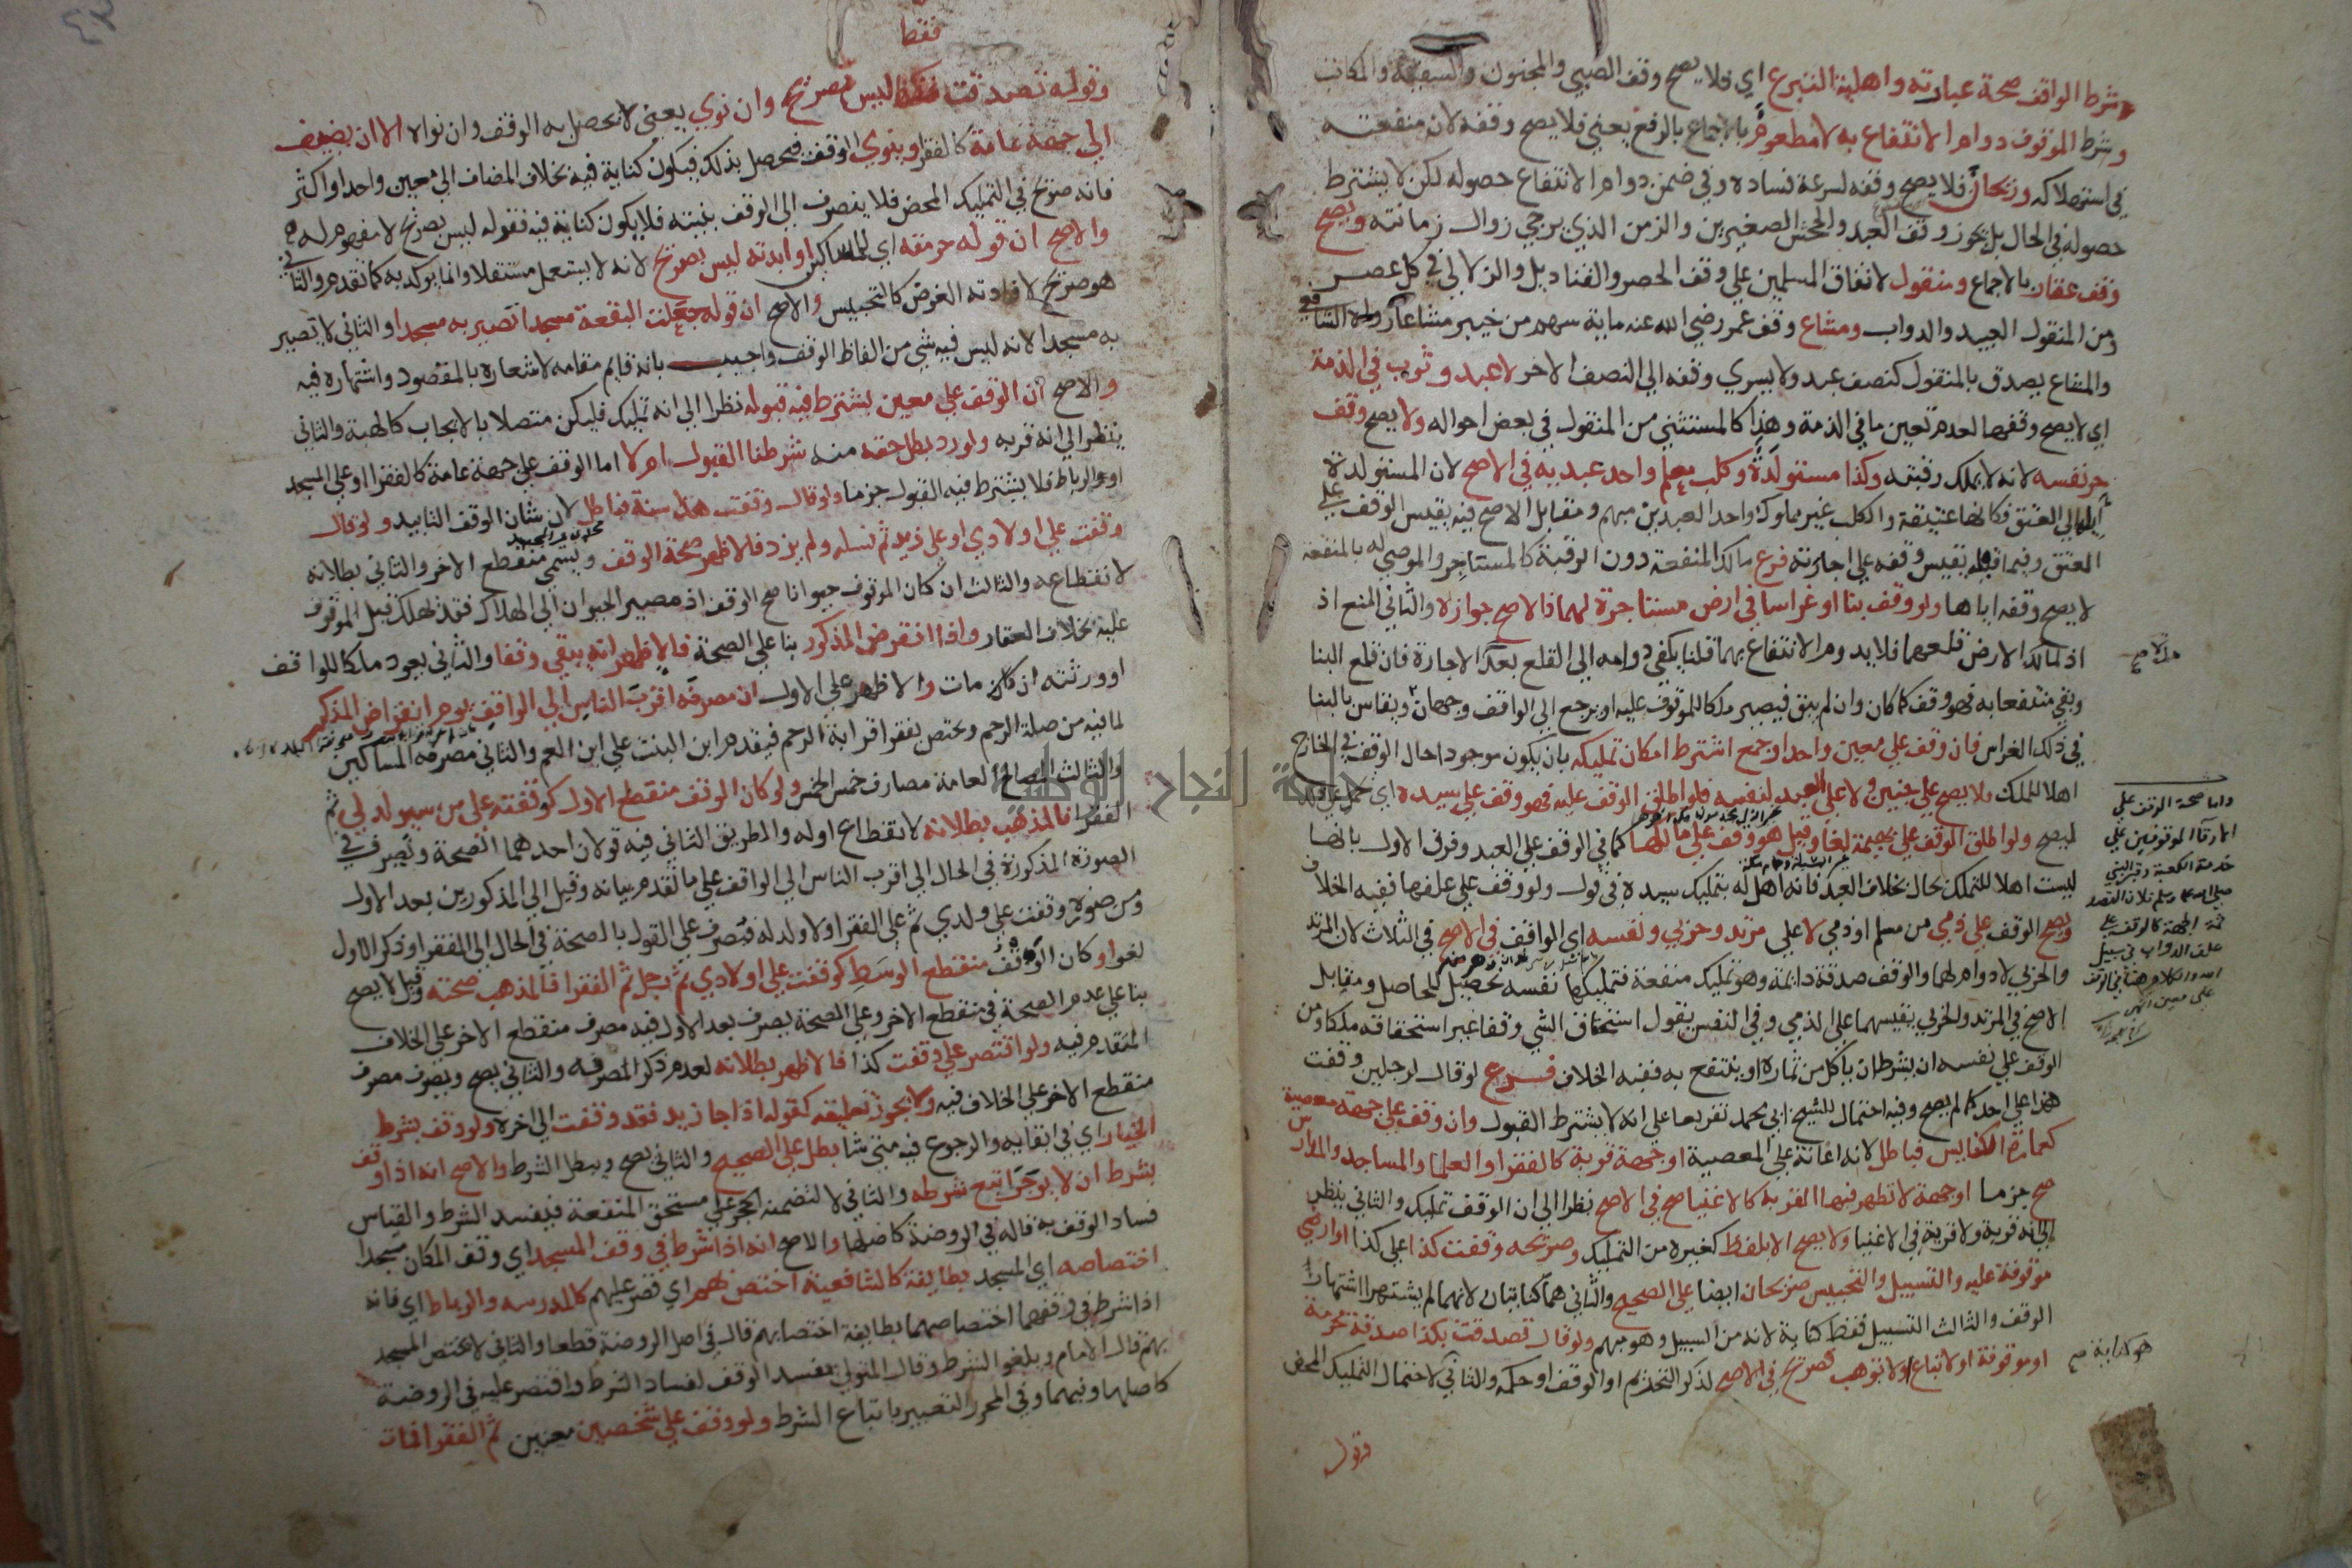 شرط الواقف صحة عبارته واهلية التبرع اي فلا يصح وقف الصبي والمجنون والسفيه والمكاتب
وشرط الموقوف دوام الانتفاع به لا مطعوم بالاجماع بالرفع يعني فلا يصح وقفه لان منفعته
في استهلاكه وريحان فلا يصح وقفه لسرعة فساده وفي ضمن دوام الانتفاع حصوله لكن لا يشترط
حصوله في الحال بل يجوز وقف العبد والجحش الصغيرين والزمن الذي يرجي زوال زمانته ويصح
وقف عقار بالاجماع ومنقول لاتفاق المسلمين علي وقف الحصر والقناديل والزلالي في كل عصر
ومن المنقول العبيد والدواب ومشاع وقف عمر رضي الله عنه ماية سهم من خيبر مشاعا رواه الشافعي
والمشاع يصدق بالمنقول كنصف عبد ولا يسري وقفه الي النصف الاخر لا عبد وثوب في الذمة
اي لا يصح وقفهما لعدم تعين ما في الذمة وهذا كالمستثني من المنقول في بعض احواله ولا يصح وقف
حر نفسه لانه لا يملك رقبته وكذا مستولدة وكلب معلم واحد عبديه في الاصح لان المستولدة
ايلة الي العتق فكانها عتيقة والكلب غير مملوك واحد العبدين مبهم ومقابل الاصح فيه يقيس الوقف علي
العتق وفيما قبله يقيس وقفه علي اجارته فرع مالك المنفعة دون الرقبة كالمستاجر والموصي له بالمنفعة
لا يصح وقفه اياها ولو وقف بنا او غراسا في ارض مستاجرة لهما فالاصح جوازه والثاني المنع اذ
اذ لمالك الارض قلعهما فلا يدوم الانتفاع بهما قلنا يكفي دوامه الي القلع بعد الاجارة فان قلع البنا
وبقي منتفعا به فهو وقف كما كان وان لم يبق فيصير ملكا للموقوف عليه او يرجع الي الواقف وجهان ويقاس بالبنا
في ذلك الغراس فان وقف علي معين واحد او جمع اشترط امكان تمليكه بان يكون موجودا حال الوقف في الخارج
اهلا للملك ولا يصح علي جنين ولا علي العبد لنفسه فلو اطلق الوقف عليه فهو وقف علي سيده اي
ليصح ولو اطلق الوقف علي بهيمة لغا وقيل هو وقف علي مالكها كما في الوقف علي العبد وفرق الاول بانها
ليست اهلا للتملك بحال بخلاف العبد فانه اهل له بتمليك سيده في قول ولو وقف علي علفها ففيه الخلاف
ويصح الوقف علي ذمي من مسلم او ذمي لا علي مرتد وحربي ونفسه اي الواقف في الاصح في الثلاث لان المرتد
والحربي لا دوام لهما والوقف صدقة دايمة وهو تمليك منفعة فتمليكها نفسه تحصيل للحاصل ومقابل
الاصح في المرتد والحربي يقيسهما علي الذمي وفي النفس يقول استحقاق الشي وقفا غير استحقاقه ملكا ومن
الوقف علي نفسه ان يشرط ان ياكل من ثماره او ينتفع به ففيه الخلاف فرع لو قال لرجلين وقفت
هذا علي احدكما لم يصح وفيه احتمال للشيخ ابي محمد تفريعا علي انه لا يشترط القبول وان وقف علي جهة معصية
كعمارة الكنايس فباطل لانه اعانة علي المعصية او جهة قربة كالفقرا والعلما والمساجد والمدارس
صح جزما او جهة لا تظهر فيها القربة كالاغنيا صح في الاصح نظرا الي ان الوقف تمليك والثاني ينظر
الي انه قربة ولا قربة في الاغنيا ولا يصح الا بلفظ كغيره من التمليك وصريحه وقفت كذا علي كذا او ارضي
موقوفة عليه والتسبيل والتحبيس صريحان ايضا علي الصحيح والثاني هما كنايتان لانهما لم يشتهرا اشتهار
الوقف والثالث التسبيل فقط كناية لانه من السبيل وهو مبهم ولو قال تصدقت بكذا صدقة محرمة
او موقوفة او لا تباع ولا توهب فصريح في الاصح لذكر التحريم او الوقف او حكمه والثاني لا لاحتمال التمليك المحض
وقوله
ملك صح
واما صحة الوقف علي
الارقا الموقوفين علي
خدمة الكعبة وقبر النبي
صلي الله عليه وسلم فلان القصد
ثمة الجهة كالوقف علي
علف الدواب في سبيل
الله والكلام هنا في الوقف
علي معين
هو كناية صح
فقط
وقوله تصدقت فقط ليس بصريح وان نوي يعني لا يحصل به الوقف وان نواه الا ان يضيف
الي جهة عامة كالفقرا وينوي الوقف فيحصل بذلك فيكون كناية فيه بخلاف المضاف الي معين واحد او اكثر
فانه صريح في التمليك المحض فلا ينصرف الي الوقف بنيته فلا يكون كناية فيه فقوله ليس بصريح لا مفهوم له
والاصح ان قوله حرمته اي للمساكين او ابدته ليس بصريح لانه لا يستعمل مستقلا وانما يوكد به كما تقدم والثاني
هو صريح لافادته الغرض كالتحبيس والاصح ان قوله جعلت البقعة مسجدا تصير به مسجدا والثاني لا تصير
به مسجدا لانه ليس فيه شي من الفاظ الوقف واجيب بانه قايم مقامه لاشعاره بالمقصود واشتهاره فيه
والاصح ان الوقف علي معين يشترط فيه قبوله نظرا الي انه تمليك فليكن متصلا بالايجاب كالهبة والثاني
ينظر الي انه قربة ولو رد بطل حقه منه شرطنا القبول ام لا اما الوقف علي جهة عامة كالفقرا او علي المسجد
او الرباط فلا يشترط فيه القبول جزما ولو قال وقفت هذا سنة فباطل لان شان الوقف التابيد ولو قال
وقفت علي اولادي او علي زيد ثم نسله ولم يزد فالاظهر صحة الوقف ويسمي منقطع الاخر والثاني بطلانه
لانقطاعه والثالث ان كان الموقوف حيوانا صح الوقف اذ مصير الحيوان الي الهلاك فقد يهلك قبل الموقوف
عليه بخلاف العقار واذا انقرض المذكور بنا علي الصحة فالاظهر انه يبقي وقفا والثاني يعود ملكا للواقف
او ورثته ان كان مات والاظهر علي الاول ان مصرفه اقرب الناس الي الواقف يوم انقراض المذكور
لما فيه من صلة الرحم ويختص بفقرا قرابة الرحم فيقدم ابن البنت علي ابن العم والثاني مصرفه المساكين
والثالث المصالح العامة مصارف خمس الخمس ولو كان الوقف منقطع الاول كوقفته علي من سيولد لي ثم
الفقرا فالمذهب بطلانه لانقطاع اوله والطريق الثاني فيه قولان احدهما الصحة وتصرف في
الصورة المذكورة في الحال الي اقرب الناس الي الواقف علي ما تقدم بيانه وقيل الي المذكورين بعد الاول
ومن صوره وقفت علي ولدي ثم علي الفقرا ولا ولد له فيصرف علي القول بالصحة في الحال الي الفقرا وذكر الاول
لغو او كان الوقف منقطع الوسط كوقفت علي اولادي ثم رجل ثم الفقرا فالمذهب صحته وقيل لا يصح
بنا علي عدم الصحة في منقطع الاخر وعلي الصحة يصرف بعد الاول فيه مصرف منقطع الاخر علي الخلاف
المتقدم فيه ولو اقتصر علي وقفت كذا فالاظهر بطلانه لعدم ذكر المصرف والثاني يصح ويصرف مصرف
منقطع الاخر علي الخلاف فيه ولا يجوز تعليقه كقوله اذا جا زيد فقد وقفت الي اخره ولو وقف بشرط
الخيار اي في ابقايه والرجوع فيه متي شا بطل علي الصحيح والثاني يصح ويبطل الشرط والاصح انه اذا وقف
بشرط ان لا يوجر اتبع شرطه والثاني لا لتضمنه الحجر علي مستحق المنفعة فيفسد الشرط والقياس
فساد الوقف به قاله في الروضة كاصلها والاصح انه اذا شرط في وقف المسجد اي وقف المكان مسجدا
اختصاصه اي المسجد بطايفة كالشافعية اختص بهم اي قصر عليهم كالمدرسة والرباط اي فانه
اذا شرط في وقفهما اختصاصهما بطايفة اختصا بهم قال في اصل الروضة قطعا والثاني لا يختص المسجد
بهم قال الامام ويلغو الشرط وقال المتولي يفسد الوقف لفساد الشرط واقتصر عليه في الروضة
كاصلها وفيهما وفي المحرر التعبير باتباع الشرط ولو وقف علي شخصين معينين ثم الفقرا فمات
جامعة النجاح الوطنية